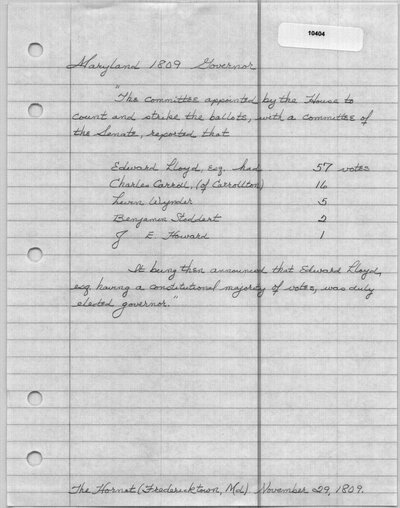 10404
Maryland 1809 Governor
"The committee appointed by the House to
count and strike the ballots, with a committee of
the Senate, reported that
Edward Lloyd, esq. had 57 votes
Charles Carroll, (of Carrollton) 16
Levin Wynder 5
Benjamin Stoddert 2
J E. Howard 1
It being then announced that Edward Lloyd,
esq. having a constitutional majority of votes, was duly
elected governor."
The Hornet (Fredericktown, Md). November 29, 1809.